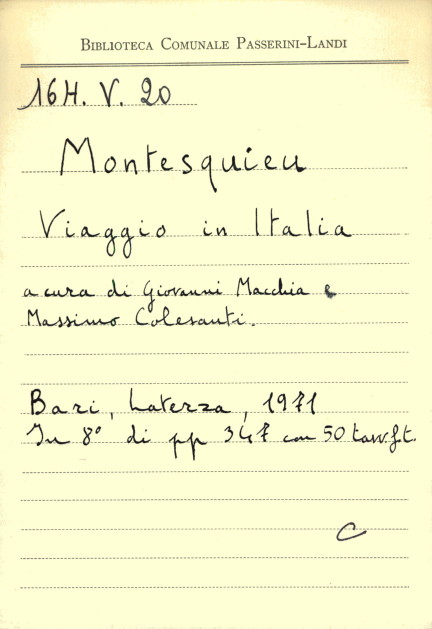 BIBLIOTECA COMUNALE PASSERINI-LANDI
16H. V. 20
Montesquieu
Viaggio in Italia
a cura di Giovanni Macchia e
Massimo Colesanti.
Bari, Laterza, 1971
In 8° di pp 347 con 50 tavv.f.t.
C